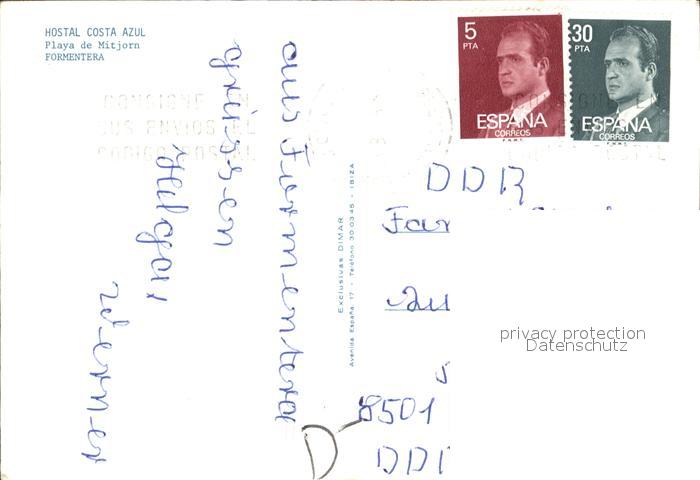 HOSTAL COSTA AZUL
Playa de Mitjorn
FORMENTERA
aus Formentera
grüssen
Helga,
Werner
Exclusivas DIMAR
Avenida España, 17 - Teléfono 30 03 45 - IBIZA
5
PTA
ESPAÑA
CORREOS
30
PTA
ESPAÑA
CORREOS
CONSIGNE EN
SUS ENVIOS EL
CODIGO POSTAL
DDR
Fam
privacy protection
Datenschutz
D-8501
DD